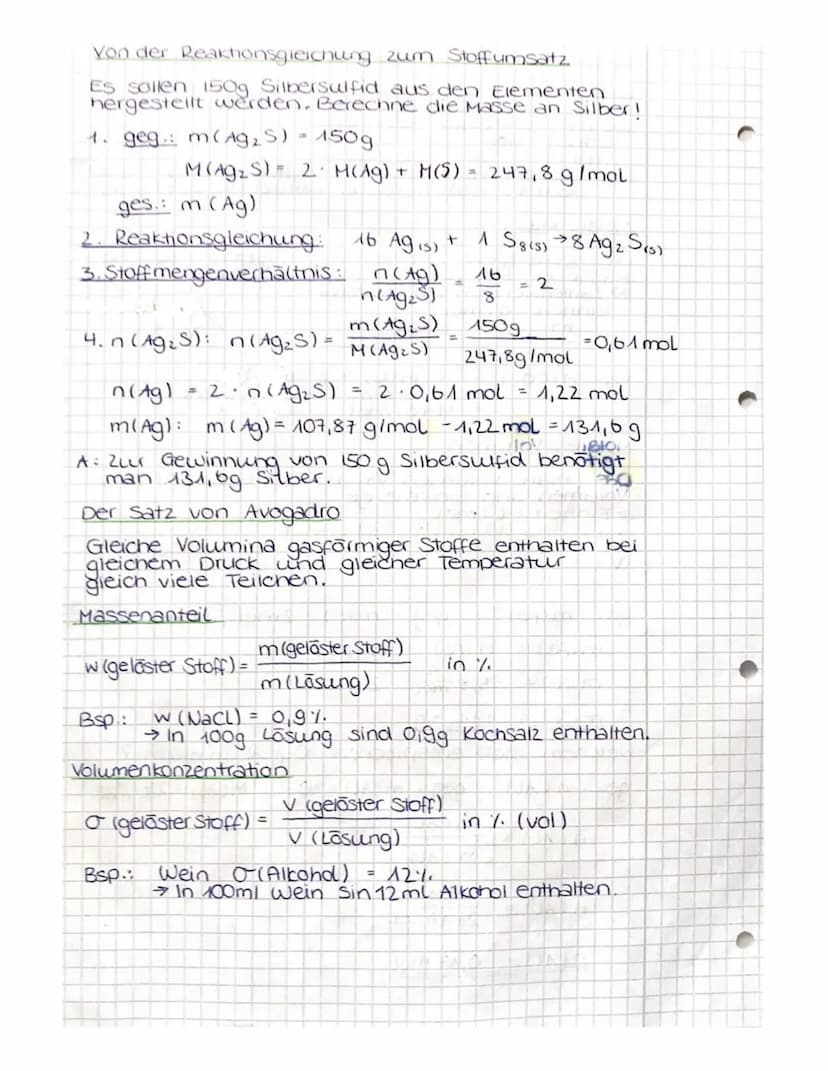 Von der Reaktionsgleichung zum Stoffumsatz
Es sollen 150g Silbersulfid aus den Elementen
hergestellt werden. Berechne die Masse an Silber!
1. geg.: m(Ag₂S) = 150g
M(Ag₂S) = 2 · M(Ag) + M(S) = 247,8 g/mol
ges.: m (Ag)
2. Reaktionsgleichung: 16 Ag(s) + 1 S8(s) → 8 Ag₂S(s)
3. Stoffmengenverhältnis: n(Ag)/n(Ag₂S) = 16/8 = 2
4. n(Ag₂S): n(Ag₂S) = m(Ag₂S)/M(Ag₂S) = 150g/247,8g/mol = 0,61 mol
n(Ag) = 2 · n(Ag₂S) = 2 · 0,61 mol = 1,22 mol
m(Ag): m(Ag) = 107,87 g/mol - 1,22 mol = 131,6 g
A: Zur Gewinnung von 150g Silbersulfid benötigt
man 131,6g Silber.
Der Satz von Avogadro
Gleiche Volumina gasförmiger Stoffe enthalten bei
gleichem Druck und gleicher Temperatur
gleich viele Teilchen.
Massenanteil
w (gelöster Stoff) = m(gelöster Stoff)/m(Lösung) in %
Bsp.: w (NaCl) = 0,9%
→ In 100g Lösung sind 0,9g Kochsalz enthalten.
Volumenkonzentration
σ (gelöster Stoff) = V (gelöster Stoff)/V (Lösung) in % (vol)
Bsp.: Wein σ(Alkohol) = 12%
→ In 100ml Wein sin 12ml Alkohol enthalten.